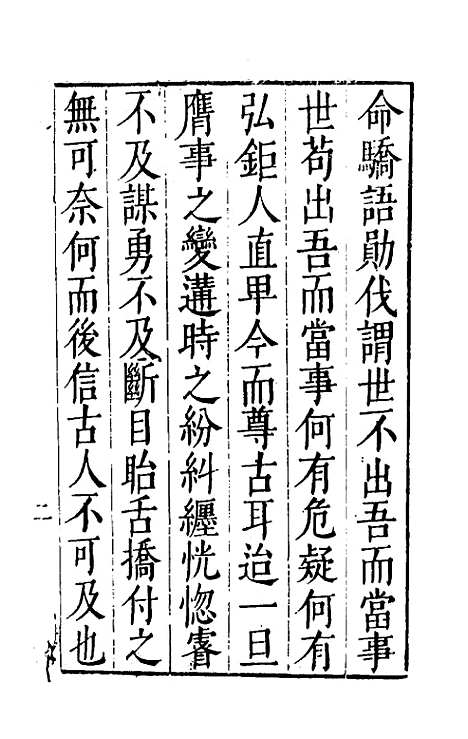 命驕語勛伐謂世不出吾而當事
世茍出吾而當事何有危疑何有
弘鉅人直卑今而尊古耳迨一旦
膺事之變遘時之紛糾纒恍惚睿
不及謀勇不及斷目眙舌撟付之
無可奈何而後信古人不可及也
二